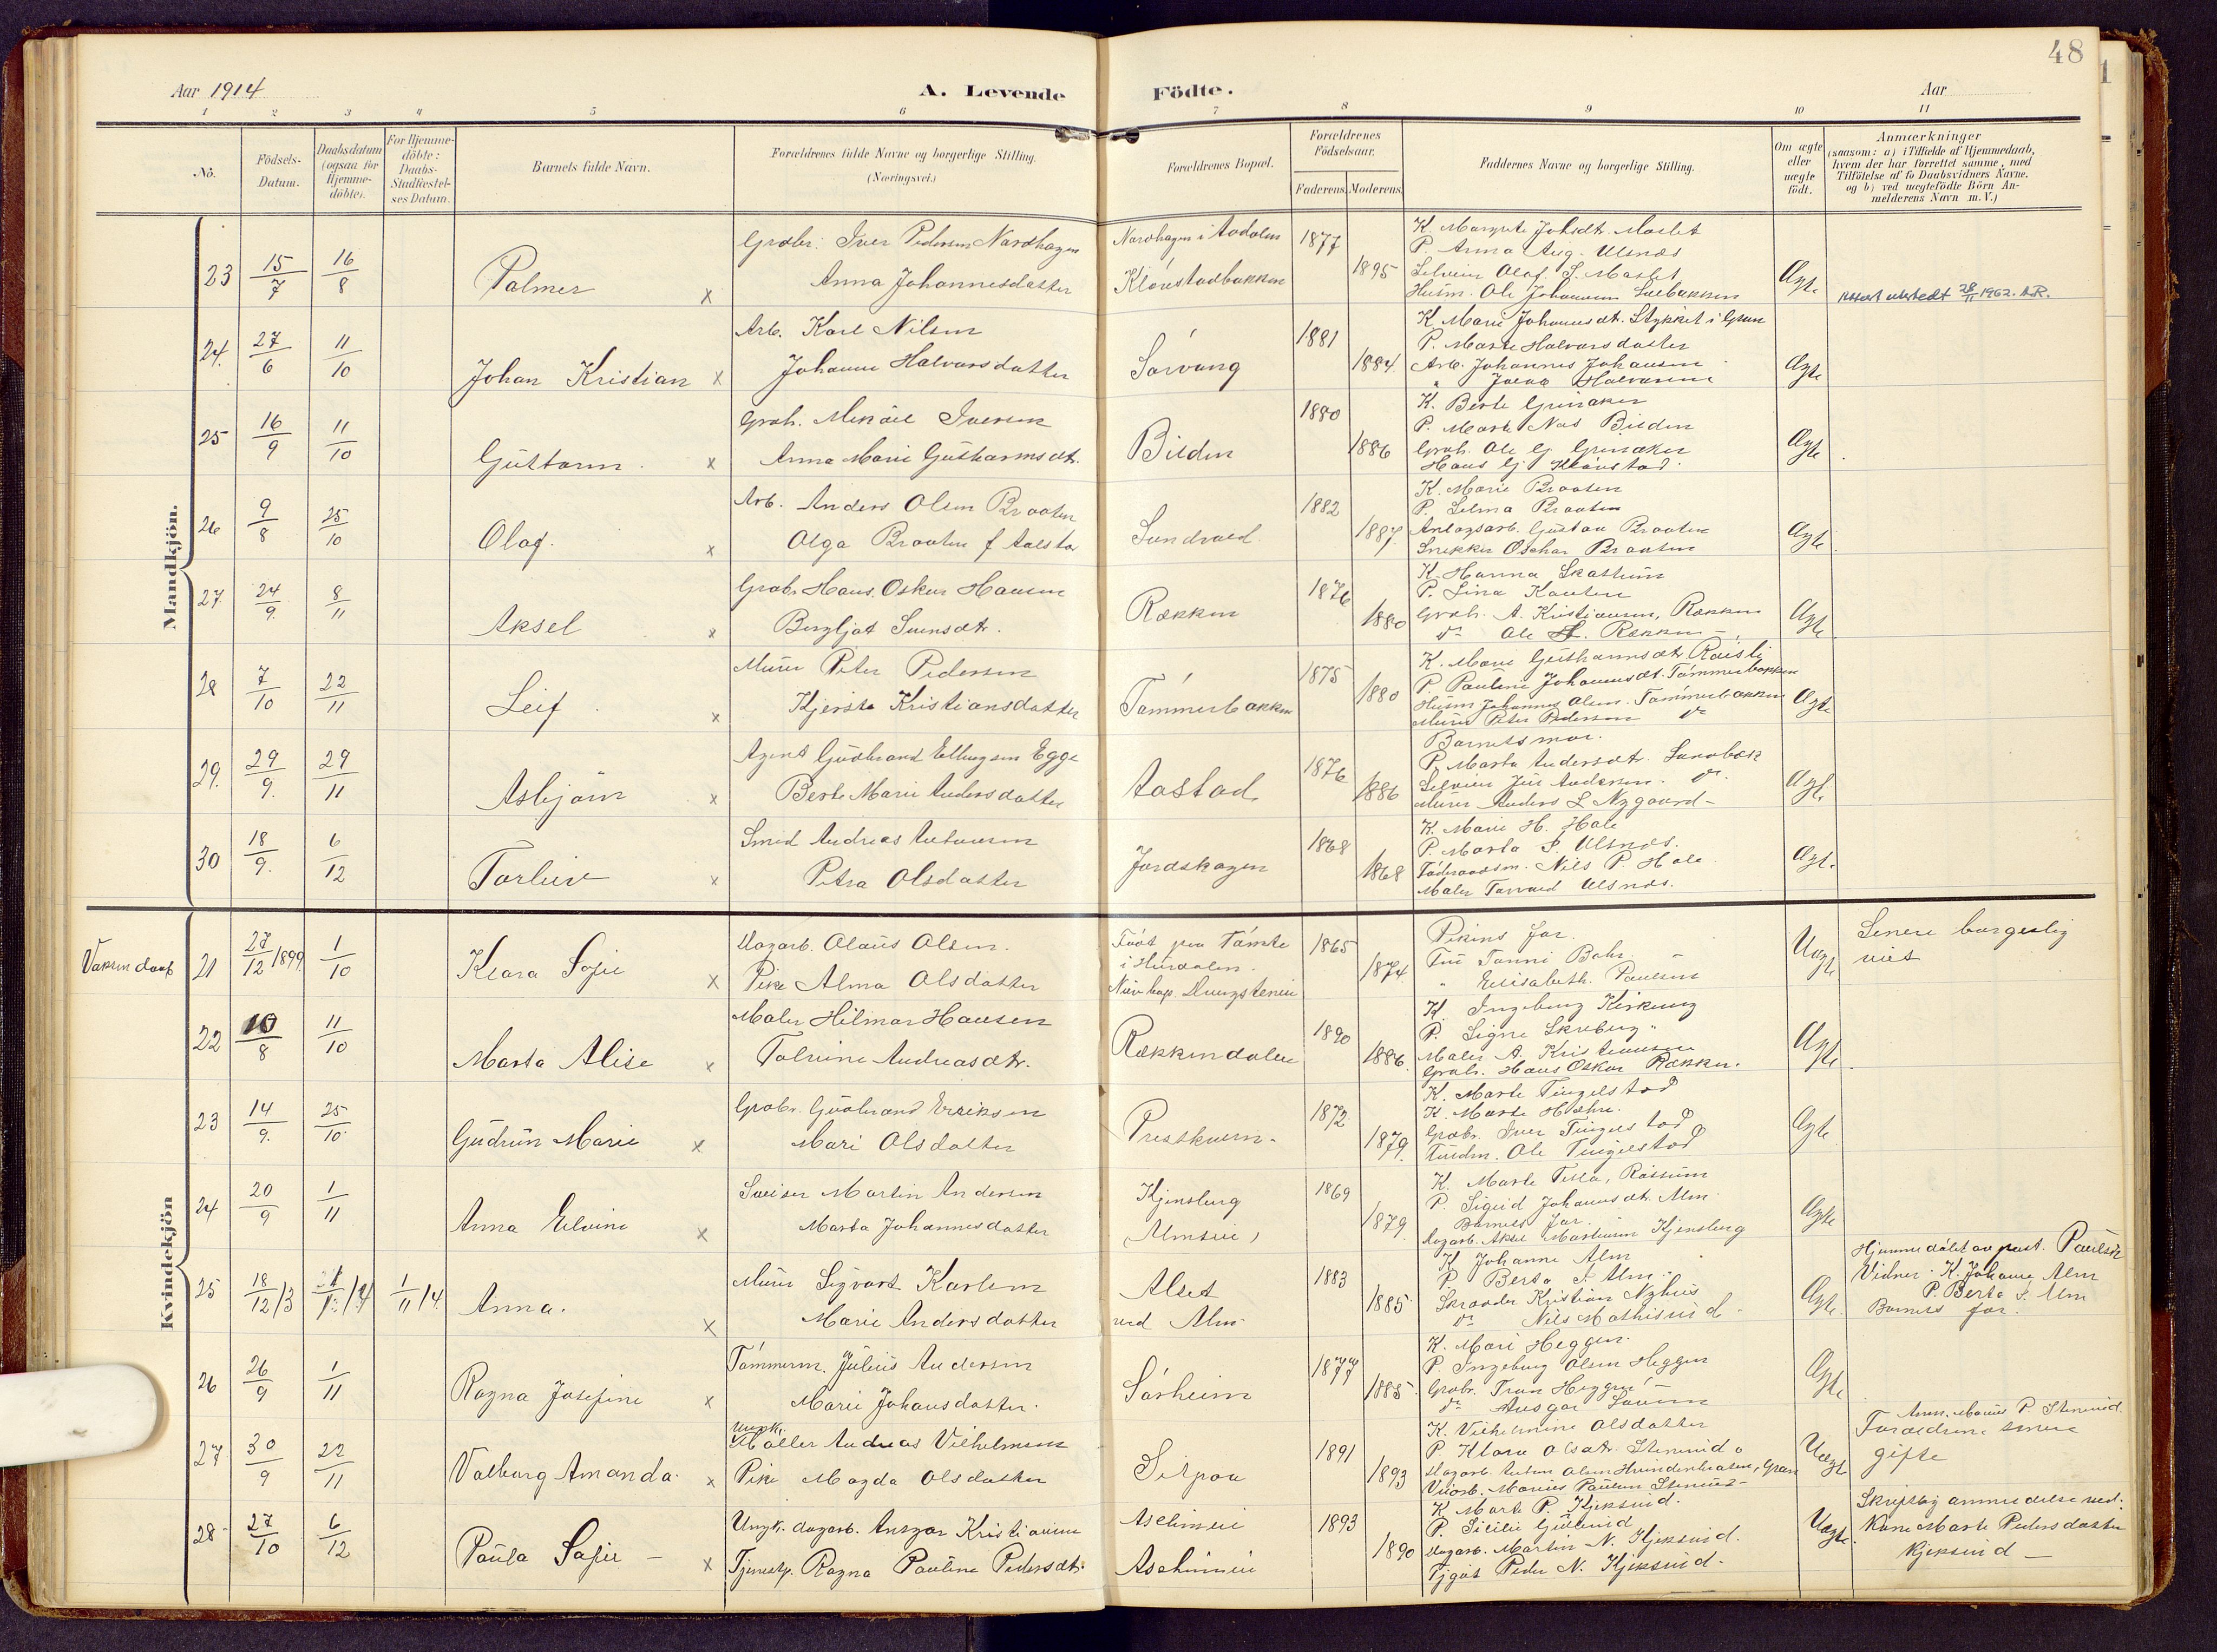 48
Aar 1914
A. Levende Födte.
Aar
1 2 3 4 5 6 7 8 9 10 11
No.
Födsels-Datum.
Daabsdatum (ogsaa for Hjemme-döbte).
For Hjemme-döbte: Daabs-Stadfæstel-ses Datum.
Barnets fulde Navn.
Forældrenes fulde Navne og borgerlige Stilling. (Næringsvei.)
Forældrenes Bopæl.
Forældrenes Födselsaar.
Faderens. Moderens.
Faddernes Navne og borgerlige Stilling.
Om ægte eller uægte födt.
Anmærkninger
(saasom: a) i Tilfælde af Hjemmedaab, hvem der har forrettet samme, med Tilföielse af to Daabsvidners Navne. og b) ved uægtefödte Börn Anmelderens Navn m. V.)
Mandkjön.
23 15/7 16/8 Palmer x
Gradbr. Iver Pedersen Nardhagen
Anna Johannesdatter
Nardhagen i Aadalen
Klövstadbakken
1877 1895
P. Anna Aug. Ulsnæs
Selveier Olaf S. Maslet
Husm. Ole Johansen
Ægte.
Attest utstedt 28/11 1962. A.R.
24. 27/6 11/10 Johan Kristian x
Arb. Karl Nilsen
Johanne Halvorsdatter
Sörvang
1881 1884
K. Marie Johannesdt. Stykket i Gran
P. Marte Halvorsdatter
Arb. Johannes Johansen
" Halvorsen
Ægte
25 16/9 11/10 Guttorm. x
Grab. Mikael Iversen
Anna Marie Guthormsdt.
Bilden
1880 1886
K. Berte Grinaker
P. Marte Nas Bilden
Grab. Ole G. Grinaker
Hans G. Klövstad.
Ægte
26 9/8 25/10 Olaf. x
Arb. Anders Olsen Braaten
Olga Braaten f
Sundvold
1882 1887
K. Marie Braaten
P. Selma Braaten
Anlægsarb. Gustav Braaten
Snekker Oskar Braaten
Ægte
27. 24/9. 8/11 Aksel x
Grabr. Hans Oskar Hansen
Bergljot Svensdt.
Rækken
1876 1880
K. Hanna Skattum
P. Lina
Grab. A. Kristiansen, Rækken
do Ole H. Rækken
Ægte
28 7/10 22/11 Leif. x
Murer Peter Pedersen
Kjersta Kristiansdatter
Tömmerbakken
1875 1880
K. Mari Guthormsdt.
P. Pauline Johannesdt. Tömmerbakken
Husm. Johannes Olsen. Tömmerbakken
Murer Peter Pedersen do
Ægte
29. 29/9. 29/11 Asbjörn x
Agent Gudbrand Ellingsen Egge
Berte Marie Andersdatter
Aastad
1876 1886
Barnets mor.
P. Marta Andersdt. Sandbæk
Selveier Andersen. do.
Murer Anders L Nygaard
Ægte
30 18/9. 6/12 Torleiv x
Smed Andreas Antonsen
Petra Olsdatter
Jordskogen
1868 1868
K. Marie H. Hole
P. Marta S. Ulsnæs.
Föderaadsm. Nils P. Hole
Maler Torvald Ulsnæs.
Ægte.
Kvindekjön
Voksen daab
21 27/12 1899 1/10 Klara Sofie x
Dagarb. Olaus Olsen.
Pike Alma Olsdatter
Födt paa Tömte
i Hurdalen.
1865 1874
Pikens far.
Fru Tanni Bohr
" Elisabeth Paulsen
Uægte
Senere borgerlig
viet
22 10/8 11/10 Marta Alise x
Maler Hilmar Hansen
Andreasdt.
Rækkendalen
1890 1886.
K. Ingeborg Kirkeng
P. Signe Skreberg
Maler A. Kristiansen
Grab. Hans Oskar Rækken.
Ægte
23 14/9. 25/10. Gudrun Marie x
Grabr. Gudbrand Eriksen
Mari Olsdatter
Prestkvern
1872 1879.
K. Marte Tingelstad
K. Marte
Grabr. Iver Tingelstad
Ole Tingelstad
Ægte
24 20/9 1/11 Anna Elvine x
Sveiser Martin Andersen
Marta Johannesdatter
Kjensberg
(Almseie)
1869 1879.
K. Marte Tilla, Rössum
P. Sigrid Johannesdt. Alm.
Barnets far.
Dagarb. Aksel Martinsen Kjensberg
Ægte
25 18/12 13 1/11 14 Anna. x
Murer Sigvart Karlsen
Marie Andersdatter
Alset
ved Alm
1883 1885
K Johanne Alm
P. Berta S. Alm
Skrædder Kristian Nyhus
do Nils Mathisrud
Ægte
Hjemmedöbt av past. Paulsen
Vidner: K. Johanne Alm
P. Berta S. Alm
Barnets far.
26 26/9 1/11 Ragna Josefine x
Tömmerm. Julius Andersen
Marie Johansdatter.
Sörheim
1877 1885
K. Mari Heggen.
P. Ingeborg Olsen Heggen
Grabr. Tron Heggen
do Ansgar
Ægte
27. 30/9 22/11 Valborg Amanda. x
Ungk.
Möller Andreas Vilhelmsen
Pike Magda Olsdatter
1891 1893
K. Vilhelmine Olsdatter
P. Klara Olsdt. Stenrud
Dagarb. Anton Olsen Gran
Marius Paulsen Stenrud
Uægte
Anm. Marius P. Stenrud.
Foreldrene senere
gifte
28 27/10 6/12 Paula Sofie — x
Ungk. dagarb. Ansgar Kristiansen
Tjenestp. Ragna Pauline Pedersdt.
Aschimeie
Aschimeie
1893 1890
K Marte P. Kjeksrud.
P. Sicilie Gullerud
Dagarb. Martin N. Kjeksrud.
Tjgut Peder N. Kjeksrud.
Uægte
Skriftlig anmeldelse ved.
Kone Marte Pedersdatter
Kjeksrud —